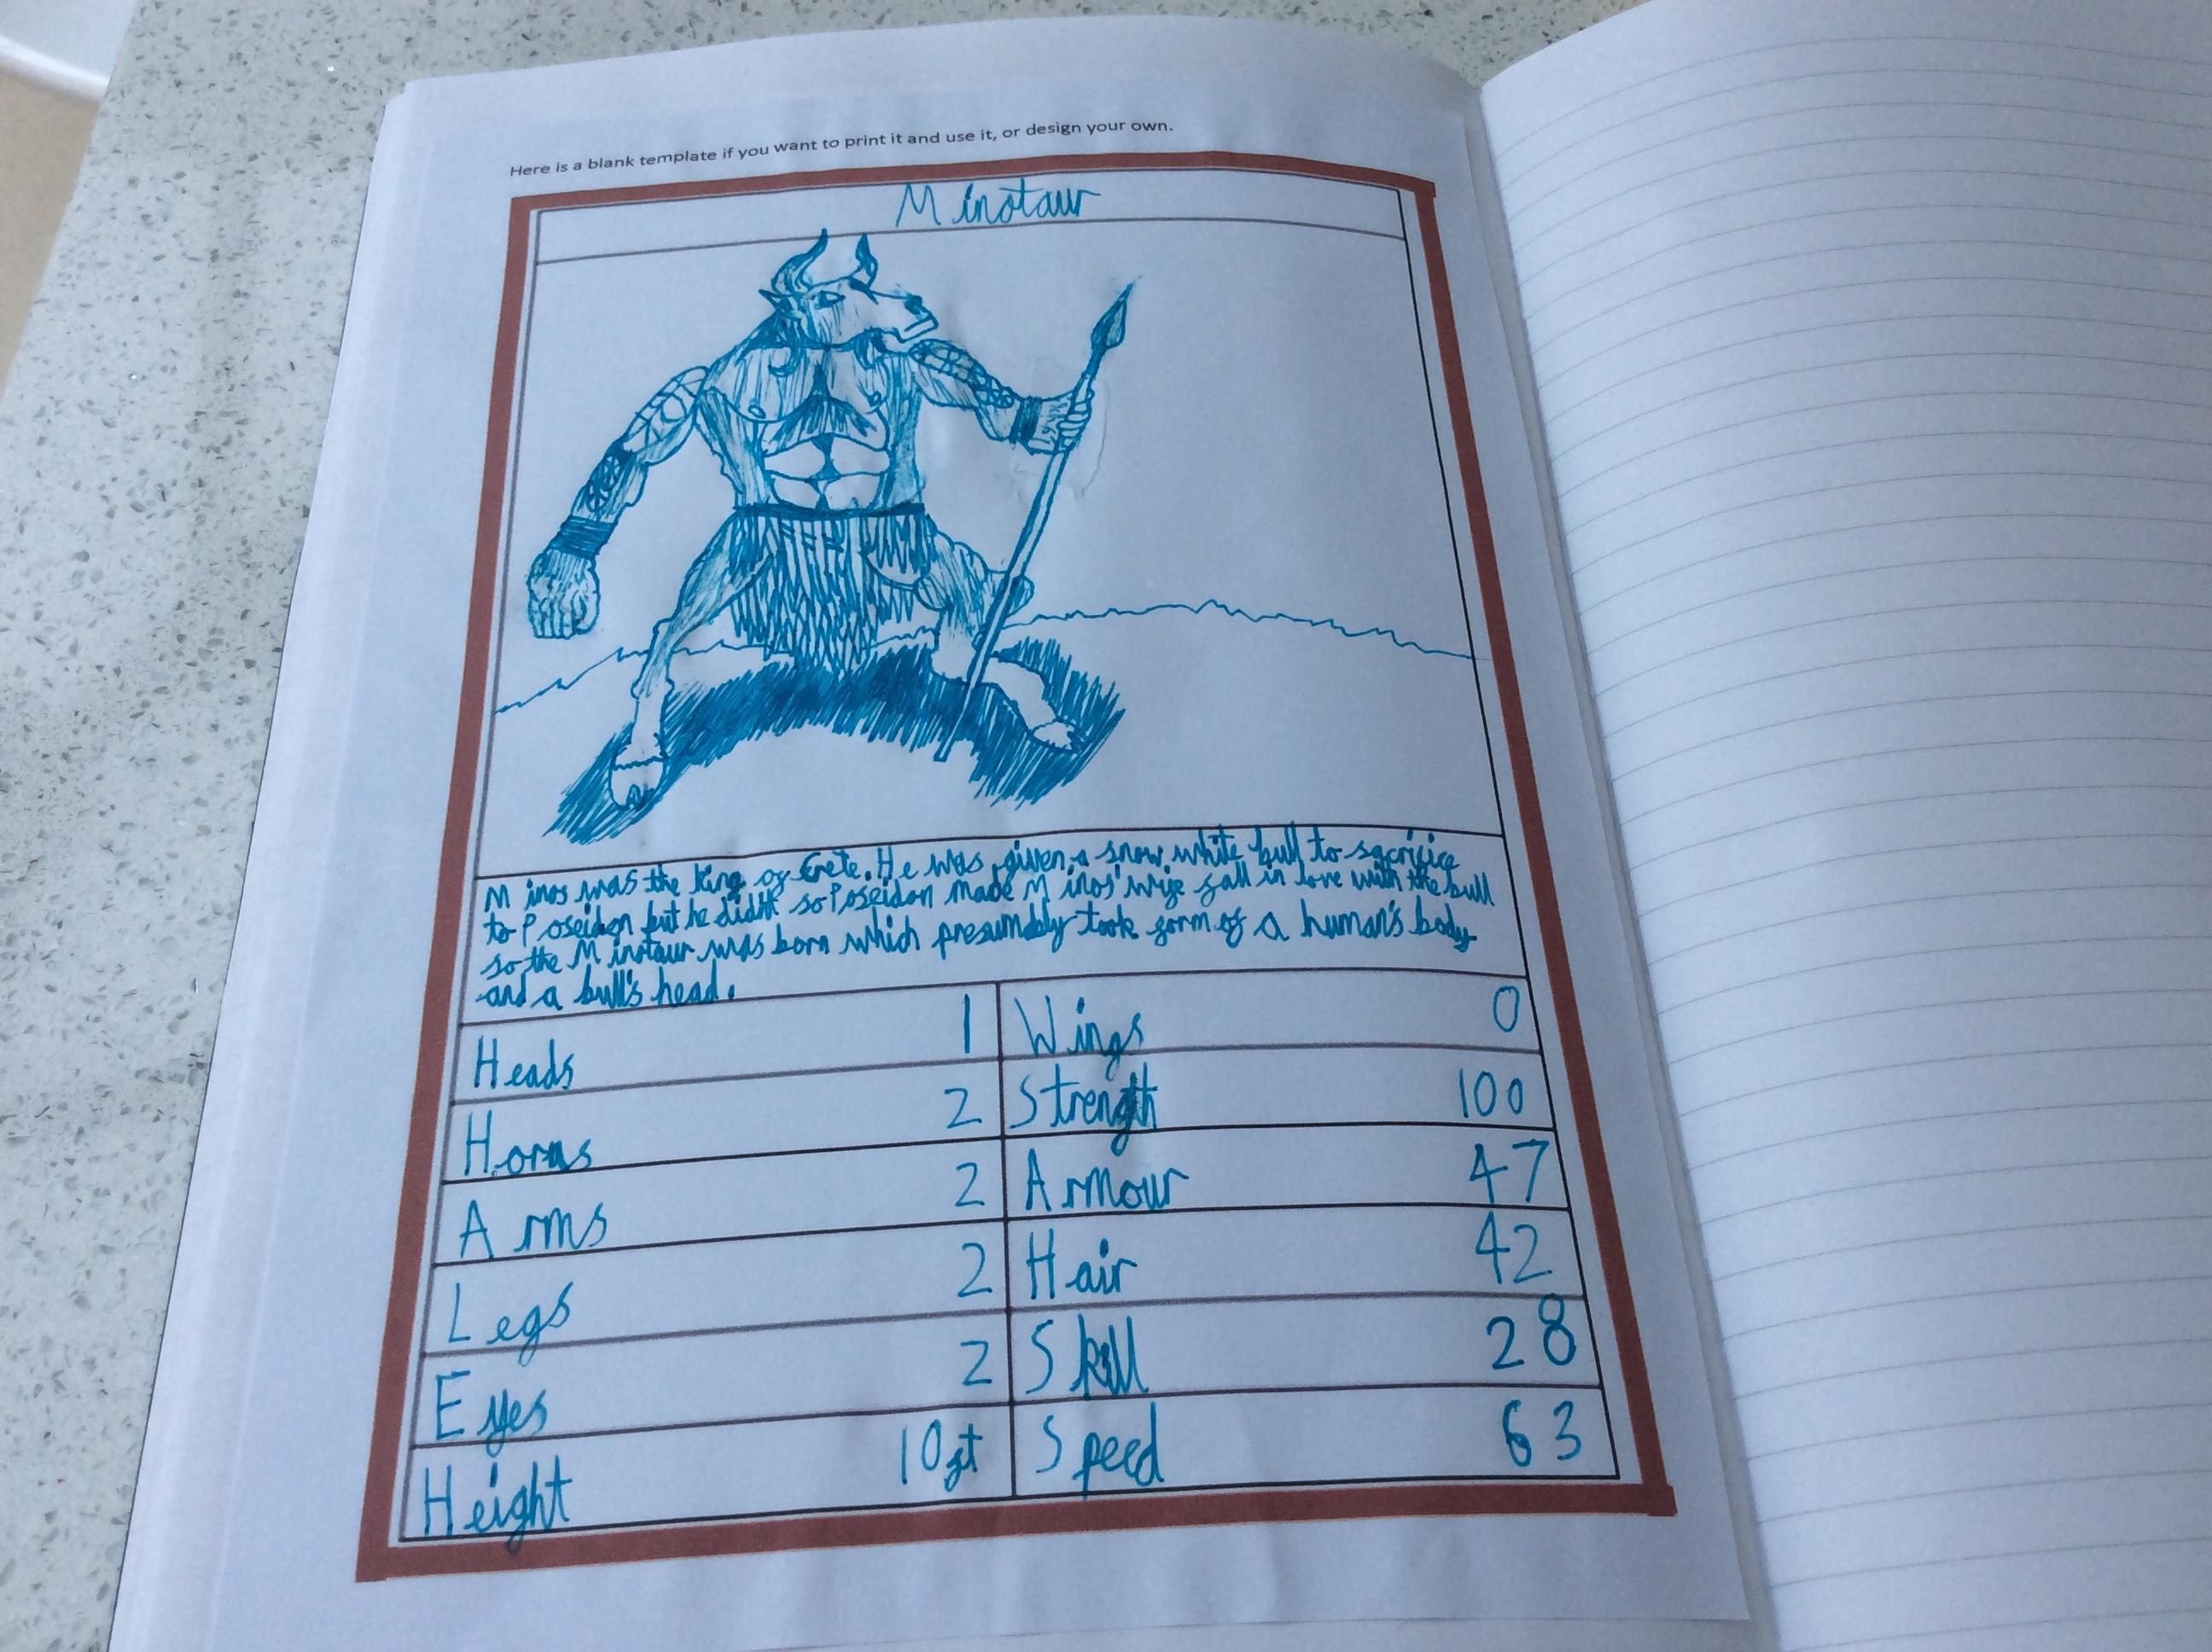 Here is a blank template if you want to print it and use it, or design your own.
Minotaur
Minos was the King of Crete. He was given a snow white bull to sacrifice
to Poseidon but he didn't so Poseidon made Minos' wife fall in love with the bull
so the Minotaur was born which presumably took form of a human's body
and a bull's head.
Heads 1 Wings 0
Horns 2 Strength 100
Arms 2 Armour 47
Legs 2 Hair 42
Eyes 2 Skill 28
Height 10ft Speed 63